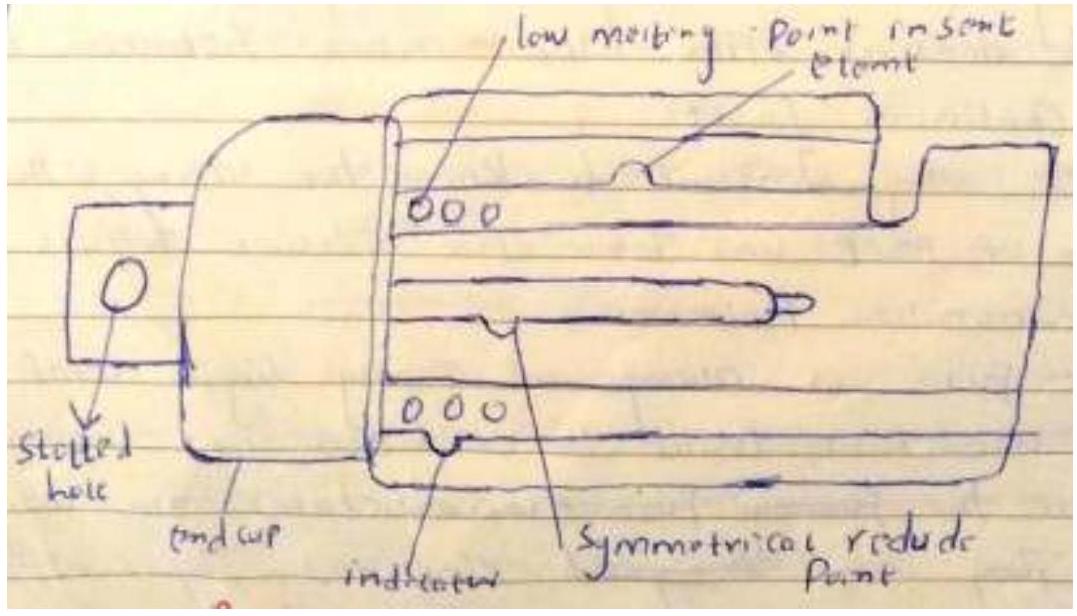 low melting point insent
elemt
Stolled
hole
end cup
indicator
Symmetrical reduds
Point